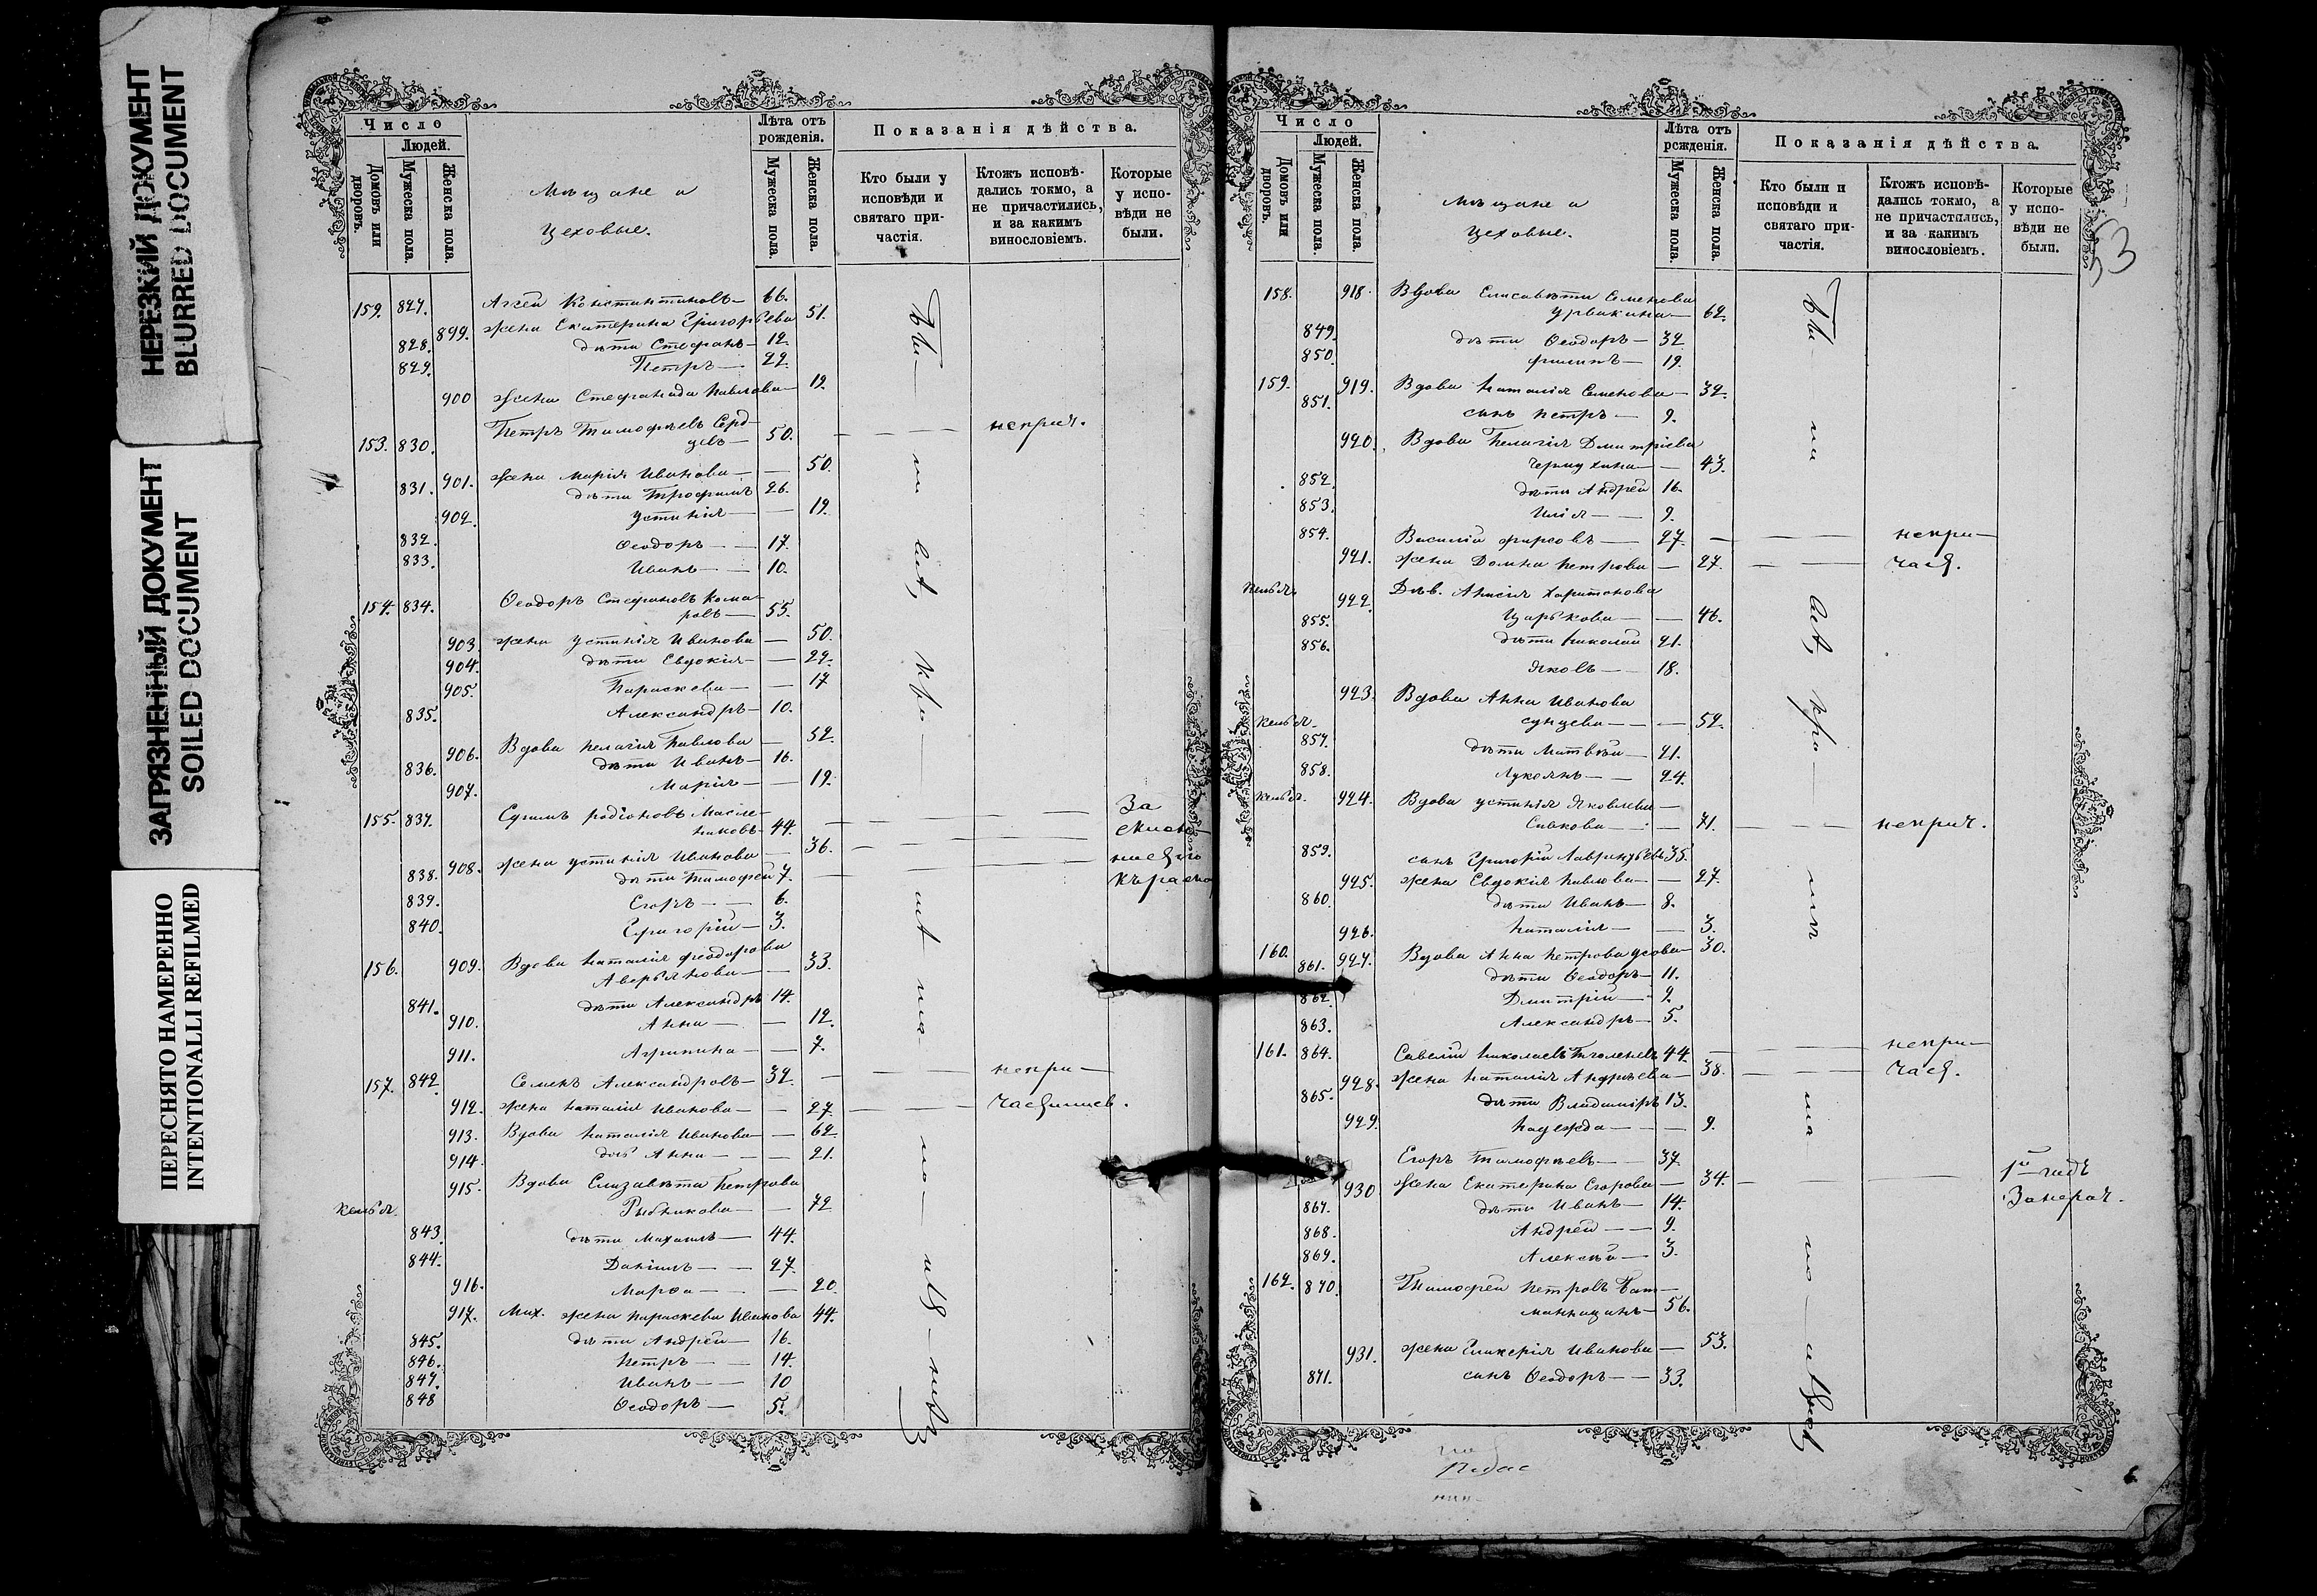 НЕРЕЗКИЙ ДОКУМЕНТ
BLURRED DOCUMENT
ЗАГРЯЗНЕННЫЙ ДОКУМЕНТ
SOILED DOCUMENT
ПЕРЕСНЯТО НАМЕРЕННО
INTENTIONALLI REFILMED
Число
Людей.
Домовъ или дворовъ.
Мужеска пола.
Женска пола.
Мѣщане и
Цеховые.
Лѣта отъ рожденія.
Мужеска пола.
Женска пола.
Показанія дѣйства.
Кто были у исповѣди и святаго причастія.
Ктожъ исповѣдались токмо, а не причастились, и за какимъ винословіемъ.
Которые у исповѣди не были.
159. 827. Аггей Константиновъ 66.
899. жена Екатерина Григорьева 51.
828. дѣти Стефанъ 12.
829. Петръ 22.
900 жена Стефанида Павлова 19.
153. 830. Петръ Тимофѣевъ Серд-
цевъ 50. неприч.
901. жена Марія Иванова 50.
831. дѣти Трофимъ 26.
902. Устинія 19.
832. Ѳеодоръ 17.
833. Иванъ 10.
154. 834. Ѳеодоръ Стефановъ Кома-
ровъ 55.
903. жена Устинія Иванова 50.
904. дѣти Евдокія 22.
905. Параскева 17
835. Александръ 10.
906. Вдова Пелагія Павлова 52.
836. дѣти Иванъ 16.
907. Марія 19.
155. 837. Родіоновъ Масле-
никовъ 44. За
908. жена Устинія Иванова 36.
838. дѣти Тимофей 7.
839. Егоръ 6.
840. Григорій 3.
156. 909. Вдова Наталія Феодорова
Аверьянова 33.
841. дѣти Александръ 14.
910. Анна 12.
911. Агрипина 7.
157. 842 Семенъ Александровъ 32. непри-
912. жена Наталія Иванова 27.
913. Вдова Наталія Иванова 62.
914. дѣв Анна 21.
915. Вдова Елизавета Петрова
келья. Рыбникова 72
843. дѣти Михаилъ 44.
844. Даніилъ 27.
916. Марѳа 20.
917. Мих. жена Параскева Иванова 44.
845. дѣти Андрей 16.
846. Петръ 14.
847. Иванъ 10
848 Ѳеодоръ 5.
53
Число
Людей.
Домовъ или дворовъ.
Мужеска пола.
Женска пола.
Мѣщане и
Цеховые.
Лѣта отъ рожденія.
Мужеска пола.
Женска пола.
Показанія дѣйства.
Кто были и исповѣди и святаго причастія.
Ктожъ исповѣдались токмо, а не причастились, и за какимъ винословіемъ.
Которые у исповѣди не были.
158. 918. Вдова Елисавета Семенова
62.
849. дѣти Ѳеодоръ 32
850. Филипъ 19.
159. 919. Вдова Наталія Семенова 32.
851. сынъ Петръ 9.
920. Вдова Пелагія Дмитріева
43.
852. дѣти Андрей 16.
853. Илія 9.
854. Василій Фирсовъ 27. непри-
921. жена Домна Петрова 27. част.
келья. 922. Дѣв. Анисія Харитонова
855. Царькова 46.
856. дѣти Николай 21.
Яковъ 18.
923. Вдова Анна Иванова
келья. 52.
857. дѣти Матвѣй 21.
858. Лукоянъ 24.
келья. 924. Вдова Устинія Яковлева
Савкова 71. неприч.
859. сынъ Григорій Лаврентьевъ 35.
925. жена Евдокія Павлова 27.
860. дѣти Иванъ 8.
926. Наталія 3.
160. 927. Вдова Анна Петрова Усова 30.
861. дѣти Ѳеодоръ 11.
862. Дмитрій 9.
863. Александръ 5.
161. 864. Савелій Николаевъ 44. непри-
928. жена Наталія Андрѣева 38. част.
865. дѣти Владиміръ 13.
929. Надежда 9.
Егоръ Тимофѣевъ 37.
930 жена Екатерина Егорова 34.
867. дѣти Иванъ 14.
868. Андрей 9.
869. Алексѣй 3.
162. 870. Тимофей Петровъ
56.
931. жена Гликерія Иванова 53.
871. сынъ Ѳеодоръ 33.